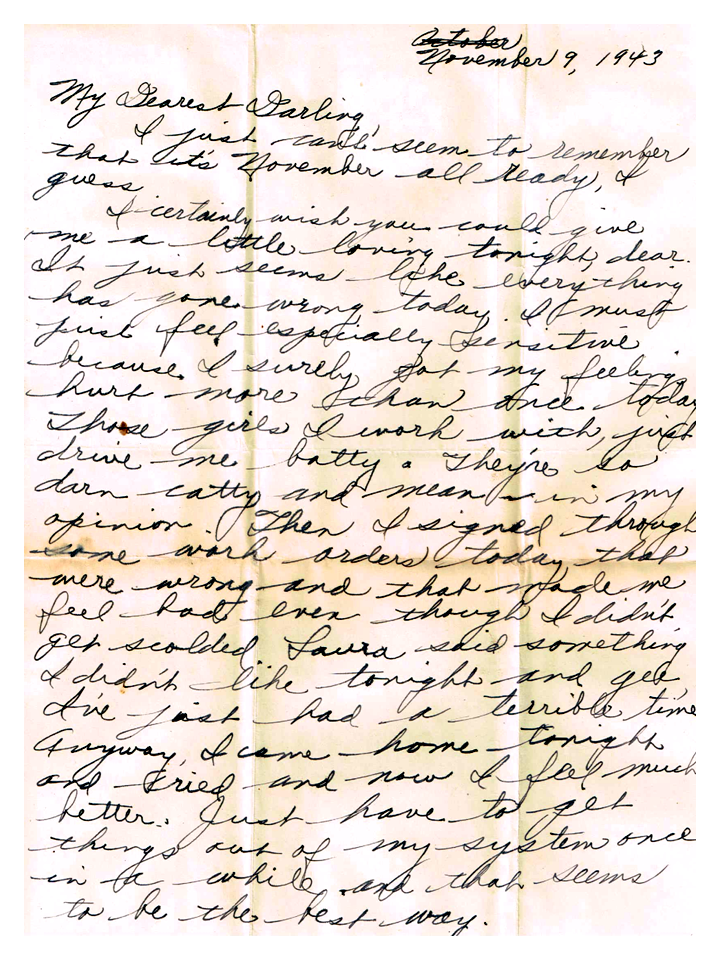 October
November 9, 1943
My Dearest Darling,
I just can't seem to remember
that it's November all ready, I
guess.
I certainly wish you could give
me a little loving tonight, dear.
It just seems like everything
has gone wrong today. I must
just feel especially sensitive
because I surely got my feelings
hurt more than once today
Those girls I work with, just
drive me batty. They're so
darn catty and mean - in my
opinion. Then I signed through
some work orders today that
were wrong and that made me
feel bad even though I didn't
get scolded. Laura said something
I didn't like tonight and gee,
I've just had a terrible time
Anyway, I came home tonight
and cried and now I feel much
better. Just have to get
things out of my system once
in a while and that seems
to be the best way.